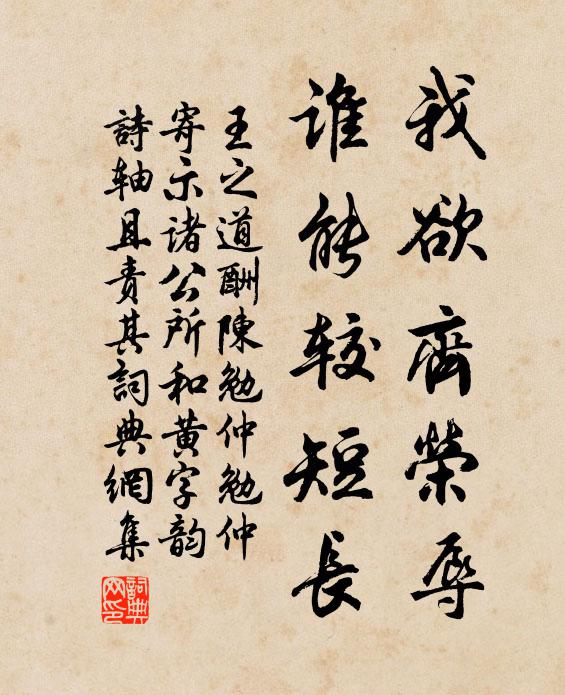 我欲齊榮辱
誰能較短長
王之道酬陳勉仲勉仲
寄示諸公所和黃字韵
詩軸且責其詞典網集
詞典網印